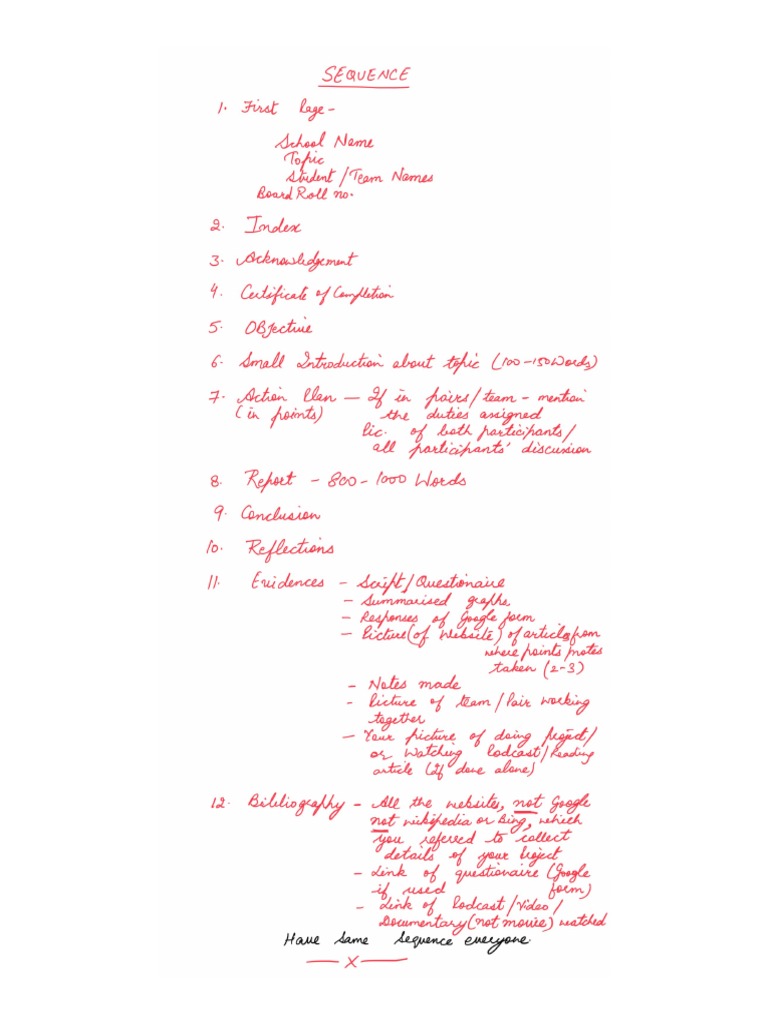 SEQUENCE
1. First Page -
School Name
Topic
Student/Team Names
Board Roll no.
2. Index
3. Acknowledgement
4. Certificate of Completion
5. Objective
6. Small Introduction about topic (100-150 Words)
7. Action Plan — If in pairs/team - mention
(in points) the duties assigned
Pic. of both participants/
all participants' discussion
8. Report - 800-1000 Words
9. Conclusion
10. Reflections
11. Evidences - Script/Questionaire
- Summarised graphs
- Responses of Google form
- Picture(of Website) of articles from
where points/notes
taken (2-3)
- Notes made
- Picture of team/Pair working
together
- Your picture of doing project/
or Watching Podcast/Reading
article (If done alone)
12. Bibliography - All the websites, not Google
not wikipedia or Bing, which
you referred to collect
details of your Project
- Link of questionaire (Google
if used form)
- Link of Podcast/Video/
Documentary(not movie) watched
Have Same Sequence everyone
— x —